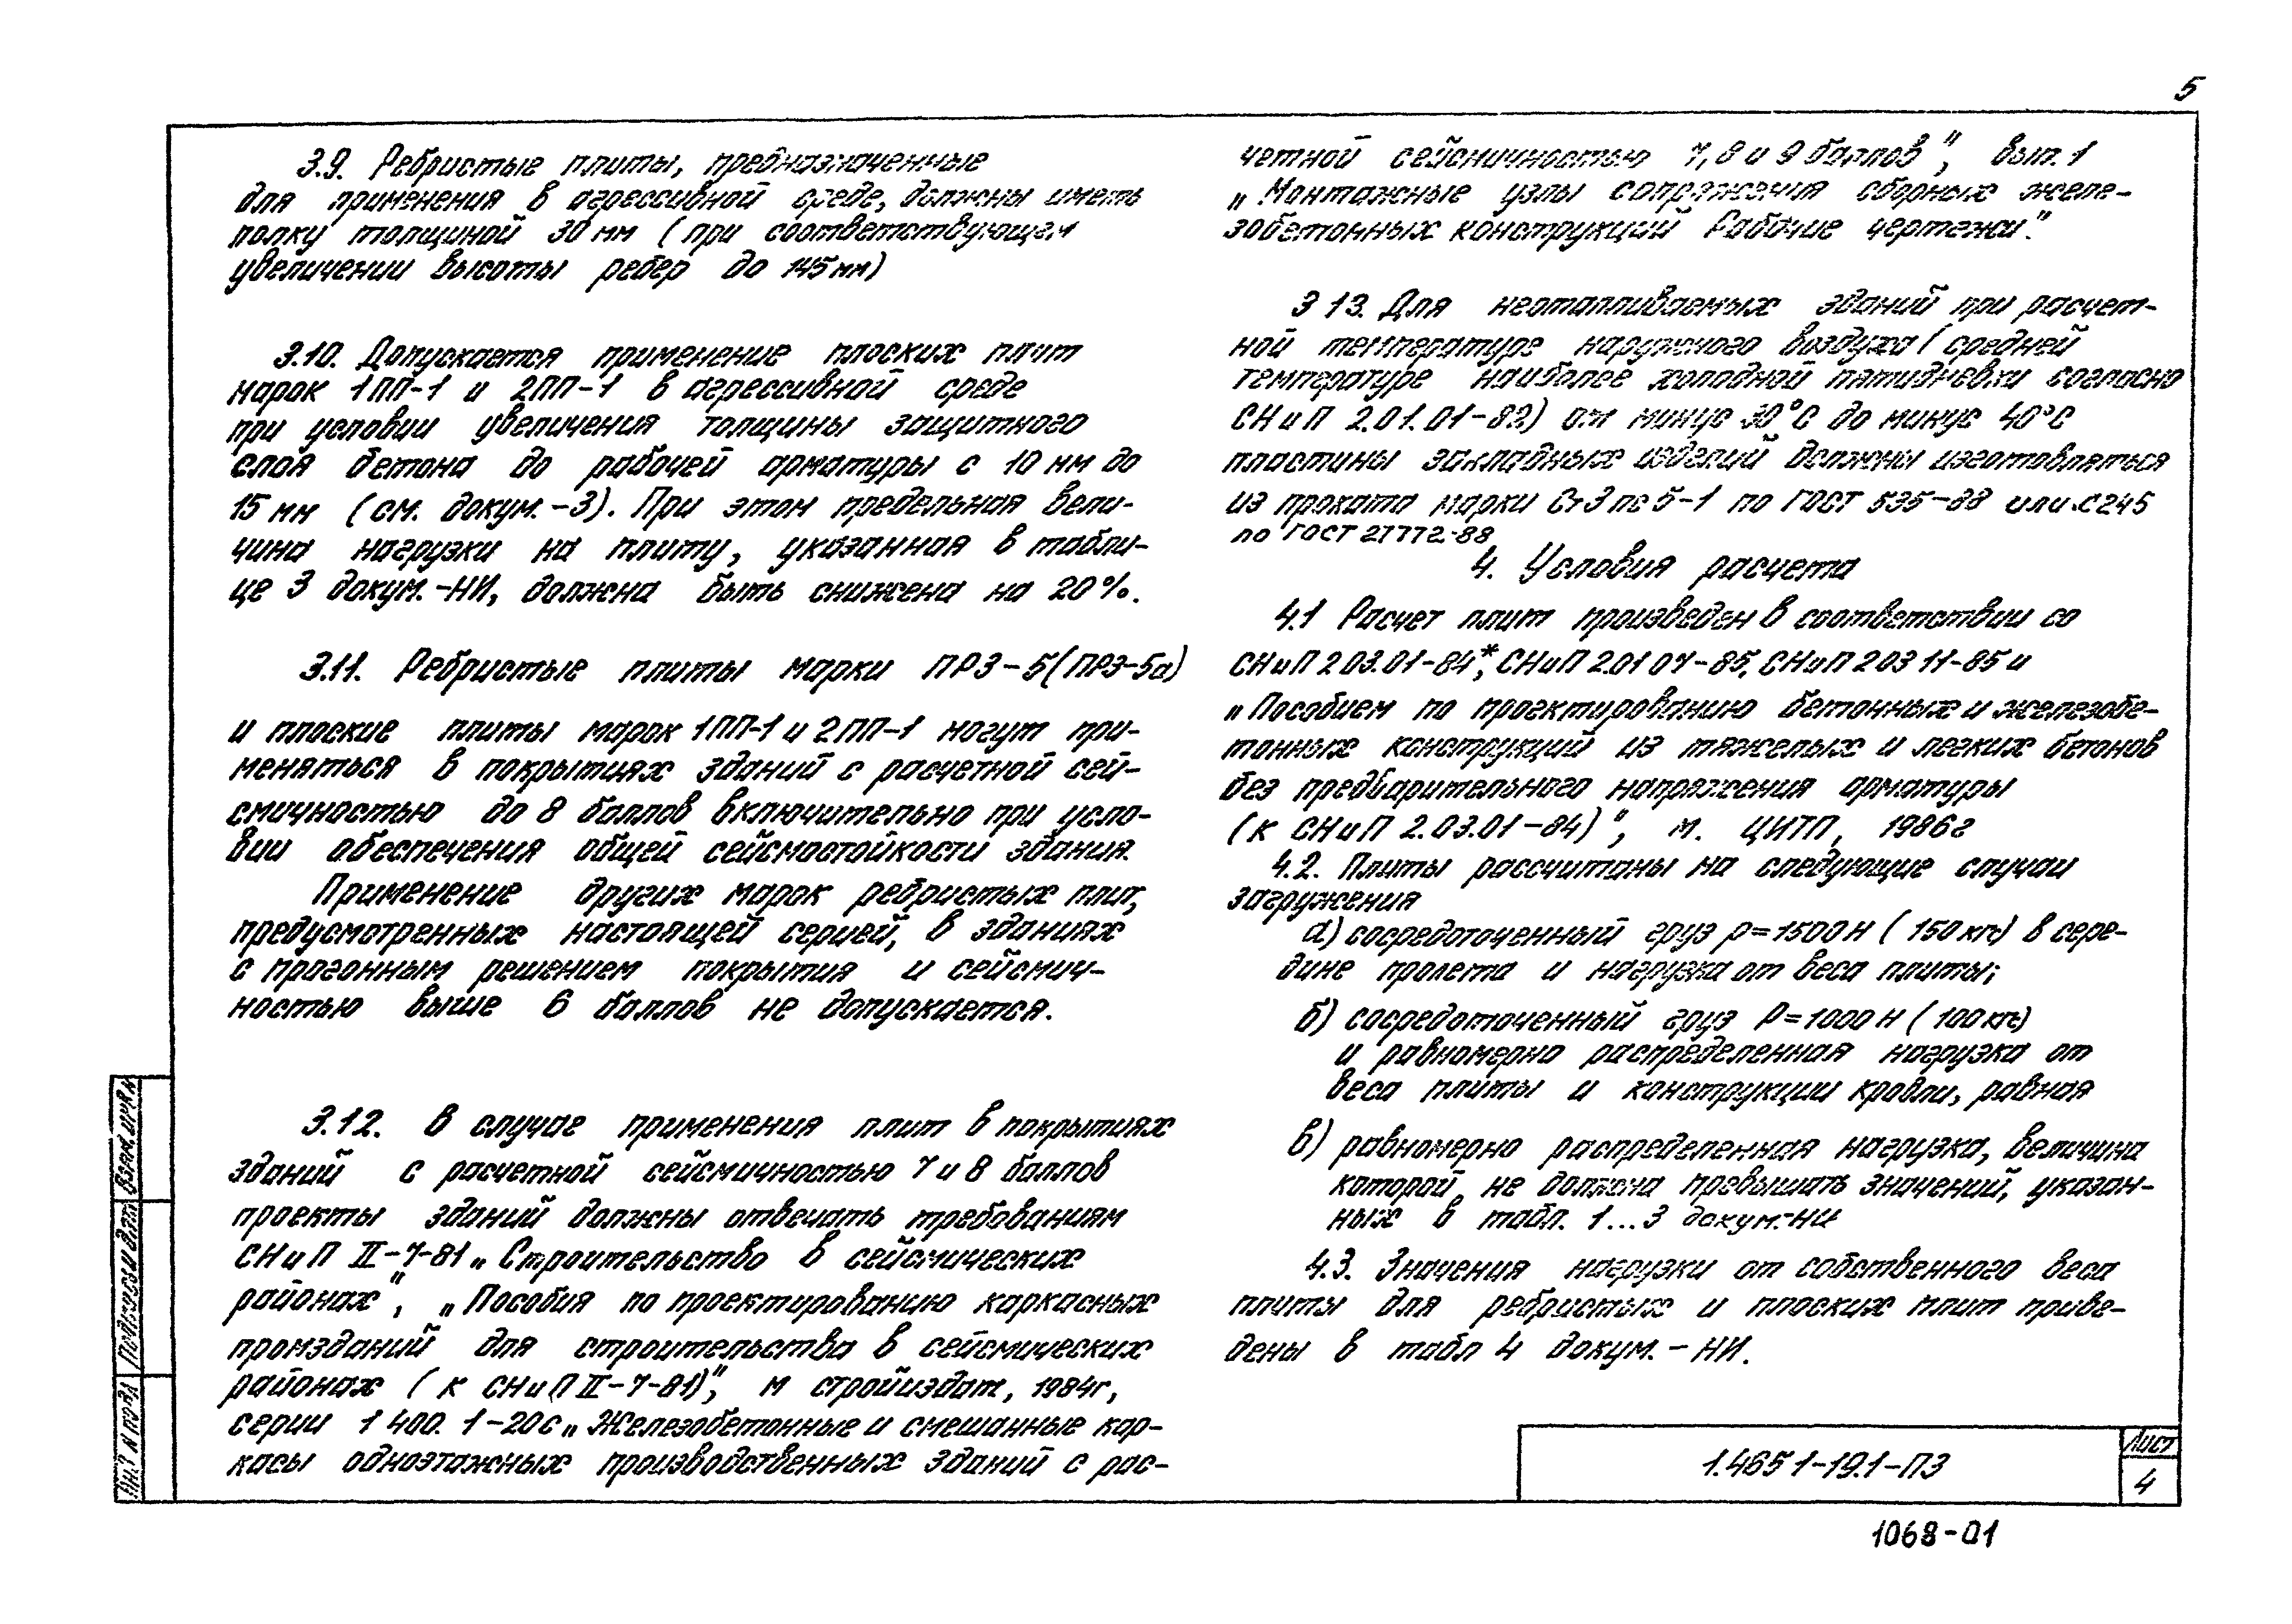 5
3.9. Ребристые плиты, предназначенные
для применения в агрессивной среде, должны иметь
полку толщиной 30 мм (при соответствующем
увеличении высоты ребер до 145 мм)
3.10. Допускается применение плоских плит
марок 1ПП-1 и 2ПП-1 в агрессивной среде
при условии увеличения толщины защитного
слоя бетона до рабочей арматуры с 10 мм до
15 мм (см. докум. -3). При этом предельная вели-
чина нагрузки на плиту, указанная в табли-
це 3 докум. -НИ, должна быть снижена на 20%.
3.11. Ребристые плиты марки ПР3-5(ПРЭ-5а)
и плоские плиты марок 1ПП-1 и 2ПП-1 могут при-
меняться в покрытиях зданий с расчетной сей-
смичностью до 8 баллов включительно при усло-
вии обеспечения общей сейсмостойкости здания.
Применение других марок ребристых плит,
предусмотренных настоящей серией, в зданиях
с прогонным решением покрытия и сейсмич-
ностью выше 6 баллов не допускается.
3.12. В случае применения плит в покрытиях
зданий с расчетной сейсмичностью 7 и 8 баллов
проекты зданий должны отвечать требованиям
СНиП II-7-81 „Строительство в сейсмических
районах", „Пособия по проектированию каркасных
промзданий для строительства в сейсмических
районах (к СНиП II-7-81)", М Стройиздат, 1984г,
серии 1 400. 1-20с „Железобетонные и смешанные кар-
касы одноэтажных производственных зданий с рас-
четной сейсмичностью 7, 8 и 9 баллов", вып. 1
„Монтажные узлы сопряжения сборных желе-
зобетонных конструкций Рабочие чертежи".
3 13. Для неотапливаемых зданий при расчет-
ной температуре наружного воздуха (средней
температуре наиболее холодной пятидневки согласно
СНиП 2.01.01-82) от минус 30°С до минус 40°С
пластины закладных изделий должны изготовляться
из проката марки Ст3пс5-1 по ГОСТ 535-88 или С245
по ГОСТ 27772-88
4. Условия расчета
4.1 Расчет плит произведен в соответствии со
СНиП 2 03.01-84*, СНиП 2.01 07-85, СНиП 2 03 11-85 и
„Пособием по проектированию бетонных и железобе-
тонных конструкций из тяжелых и легких бетонов
без предварительного напряжения арматуры
(к СНиП 2.03.01-84)", М. ЦИТП, 1986г
4.2. Плиты рассчитаны на следующие случаи
загружения
а) сосредоточенный груз Р=1500Н (150кгс) в сере-
дине пролета и нагрузка от веса плиты;
б) сосредоточенный груз Р=1000 Н (100кгс)
и равномерно распределенная нагрузка от
веса плиты и конструкции кровли, равная
в) равномерно распределенная нагрузка, величина
которой не должна превышать значений, указан-
ных в табл. 1...3 докум.-НИ
4.3. Значения нагрузки от собственного веса
плиты для ребристых и плоских плит приве-
дены в табл 4 докум. - НИ.
Взам. инв. N
Подпись и дата
Инв. N подл
1.465 1-19.1-ПЗ
Лист
4
1068-01